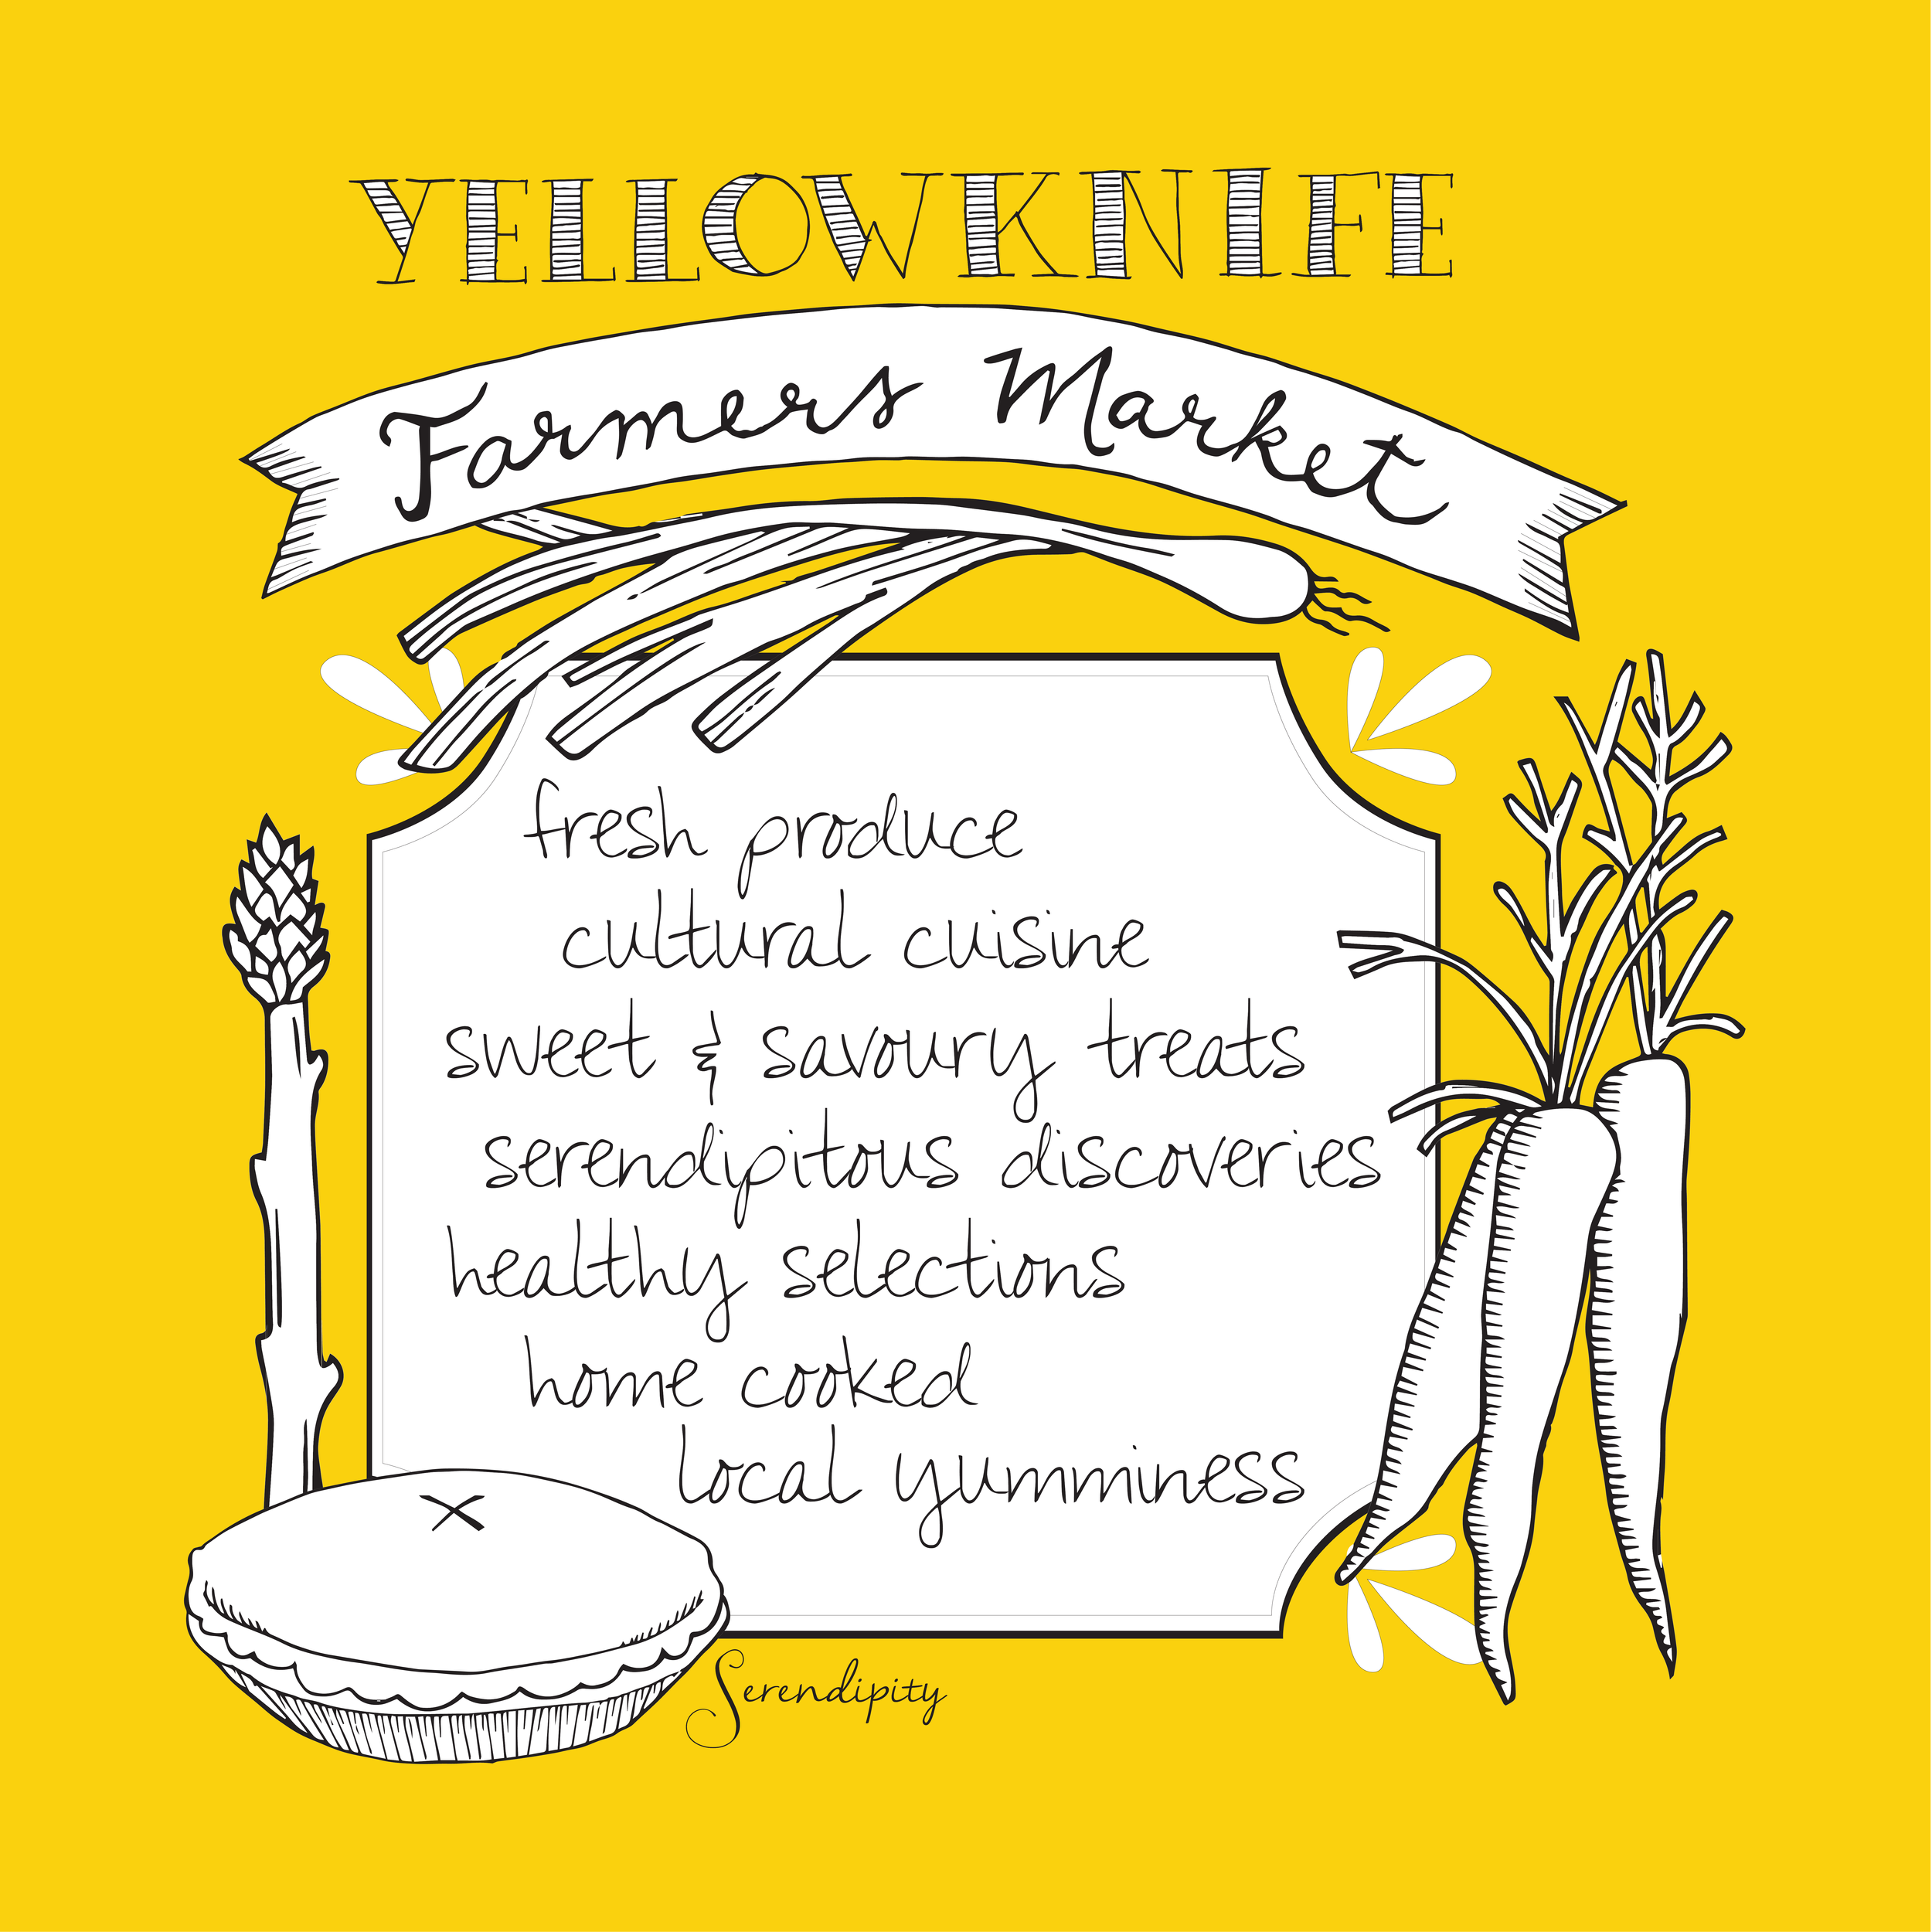 YELLOWKNIFE
Farmers Market
fresh produce
cultural cuisine
sweet & savoury treats
serendipitous discoveries
healthy selections
home cooked
local yumminess
Serendipity